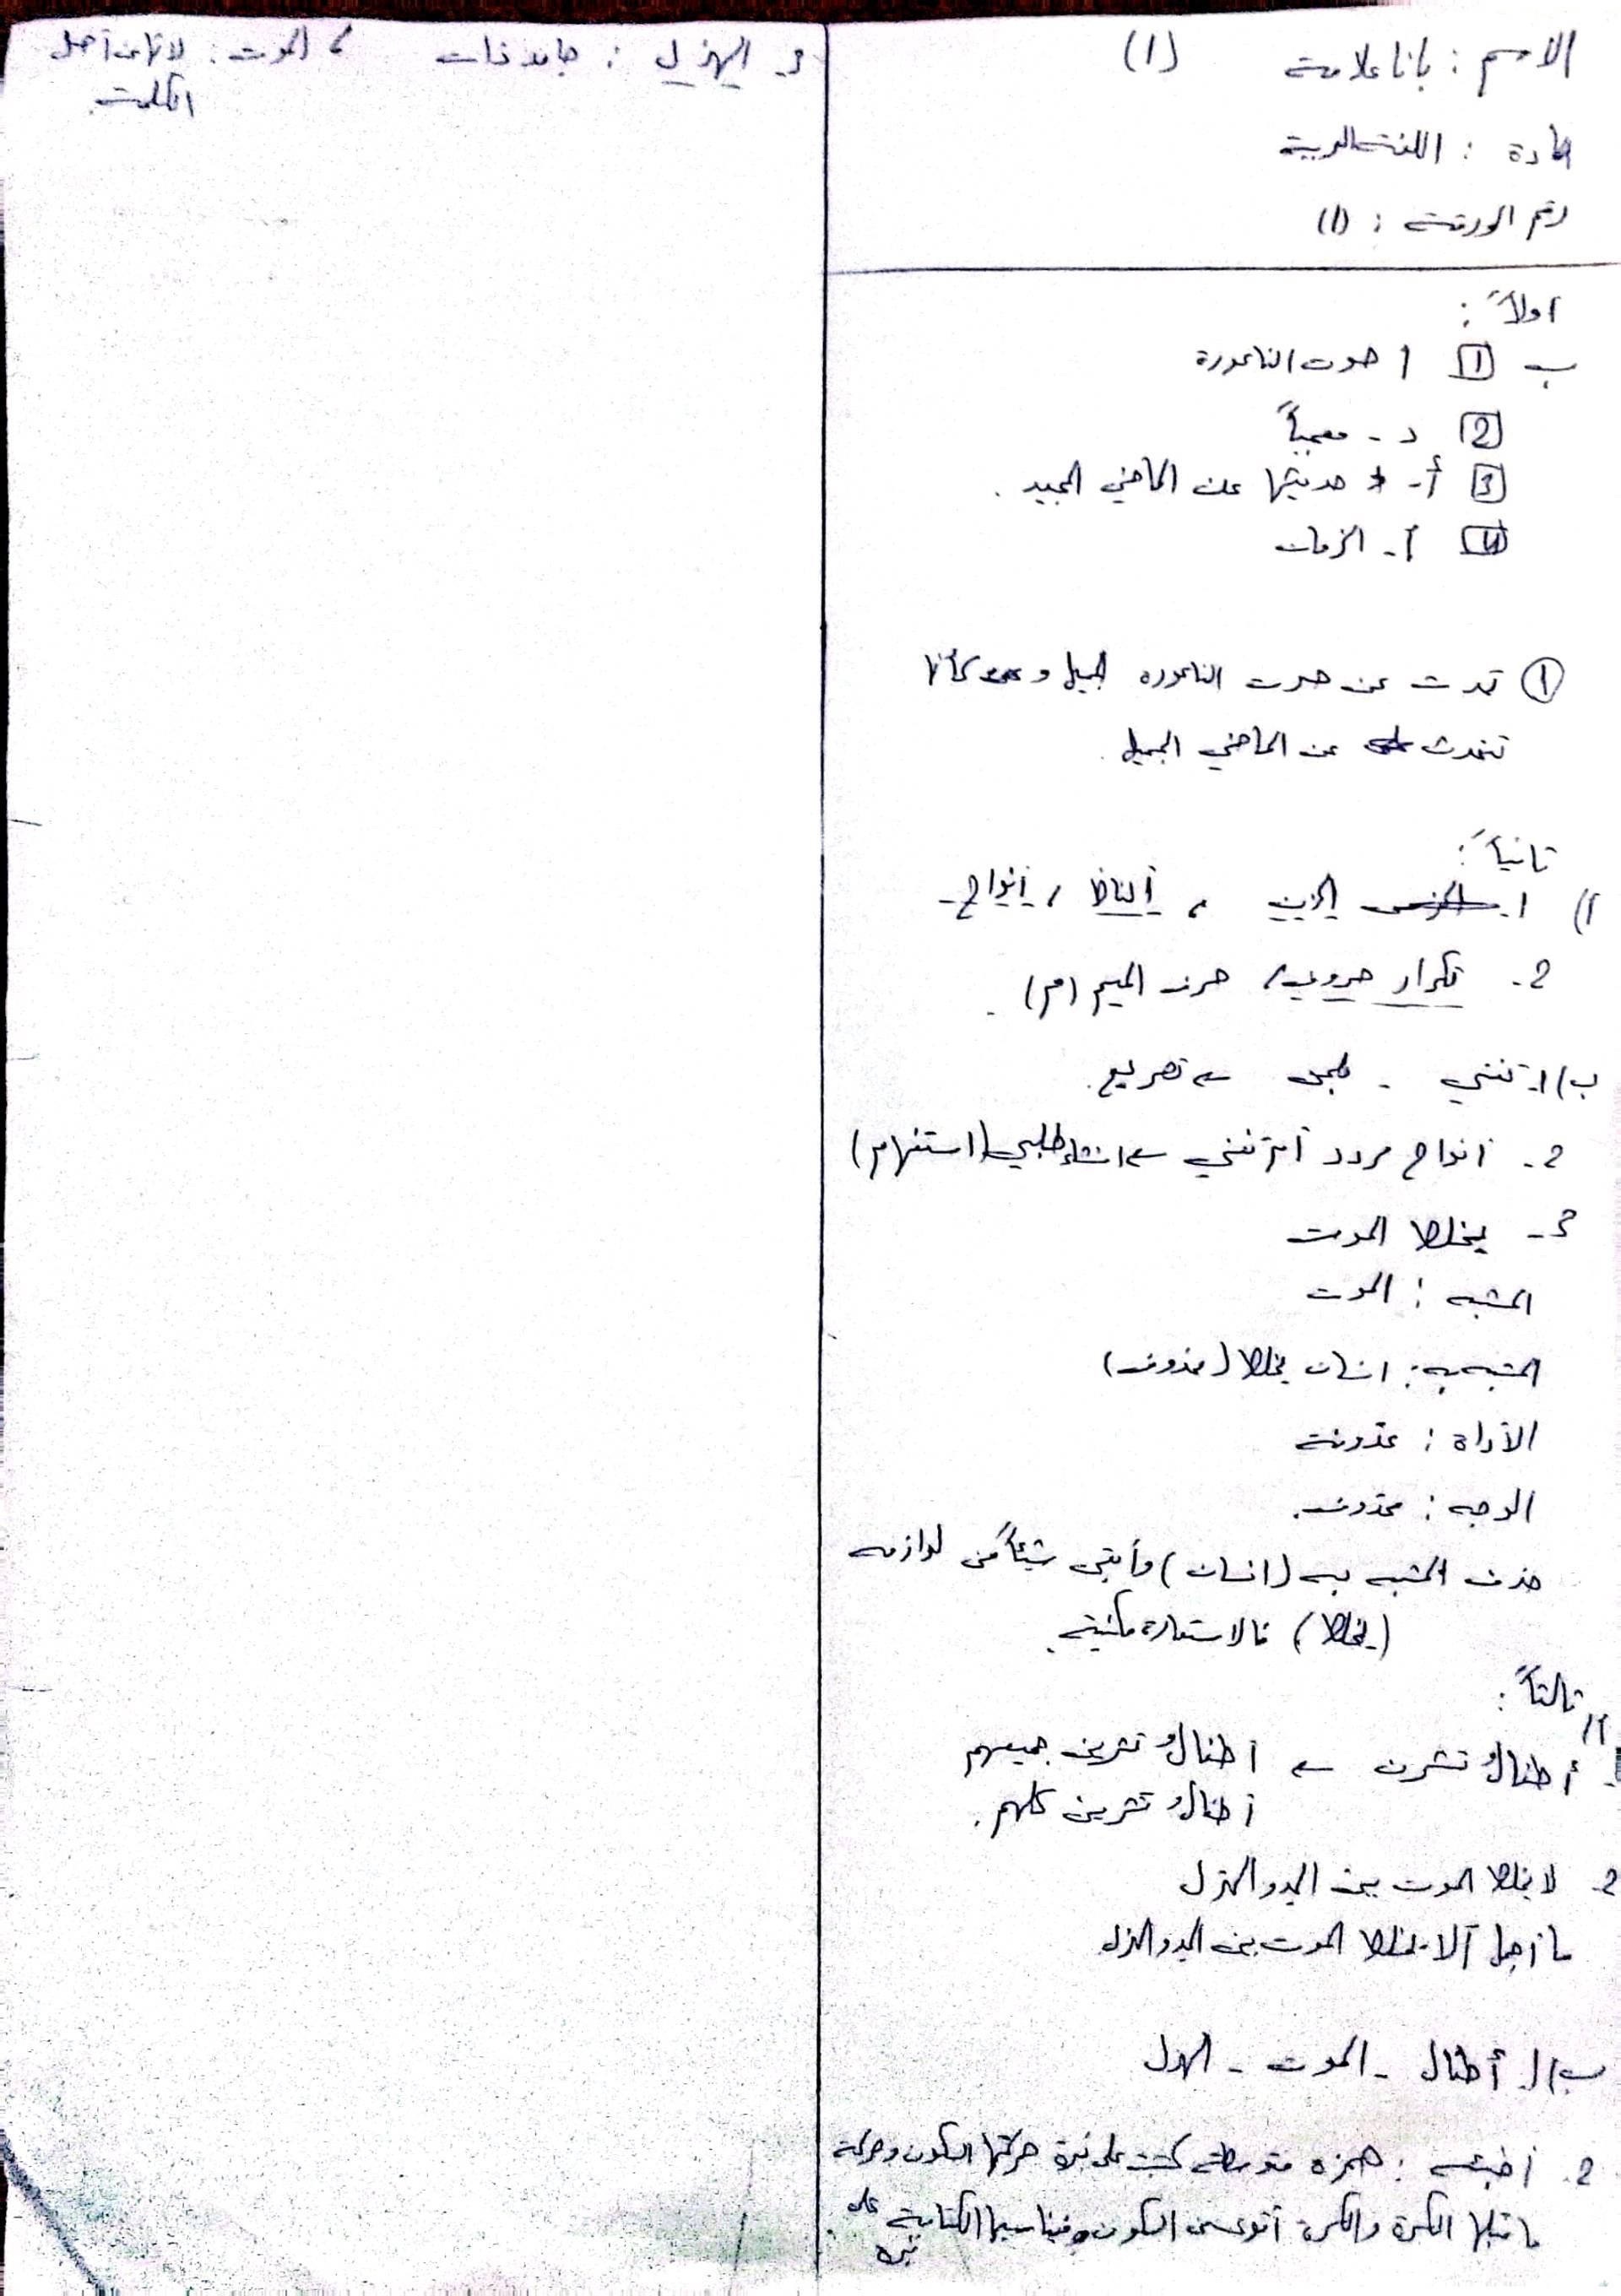 الاسم : بانا علامة (١)
المادة : اللغة العربية
رقم الورقة : (١)
اولاً :
ب 1 أ صوت الناعورة
2 د - معجباً
3 أ - حديثها عن الماضي المجيد .
4 أ - الزمان
١ تحدث عن صوت الناعورة الجميل و كأنها
تتحدث عن الماضي الجميل .
ثانياً :
أ) ١ . الحزن ، ألفاظ / أنواح -
2 - تكرار حروف / حرف الميم (م) .
ب) ١- تغني - ← تصريع .
2 - أنواح مردد أم تغني ← انشاء طلبي (استفهام)
3 - يخلط الموت
المشبه : الموت
المشبه به : انسان يخلط (محذوف)
الأداة : محذوفة
الوجه : محذوف .
حذف المشبه به (انسان) وأبقى شيئاً من لوازمه
(يخلط) فالاستعارة مكنية .
ثالثاً :
أ/
1- أطفالُ تشرين ← أطفالُ تشرين جميعهم
أطفالُ تشرين كلهم .
2- لا يخلط الموت بين الجد والهزل
ما أجمل ألا يخلط الموت بين الجد والهزل
ب) ١. أطفال - الموت - الهزل
2 . : همزه متوسطة كتبت على نبرة حركتها السكون وحركة
ما قبلها الكسرة والكسرة أقوى من السكون ويناسبها الكتابة على
نبره
3- الهزل : جامد ذات ، الموت : لأنها من أصل
الكلمة .